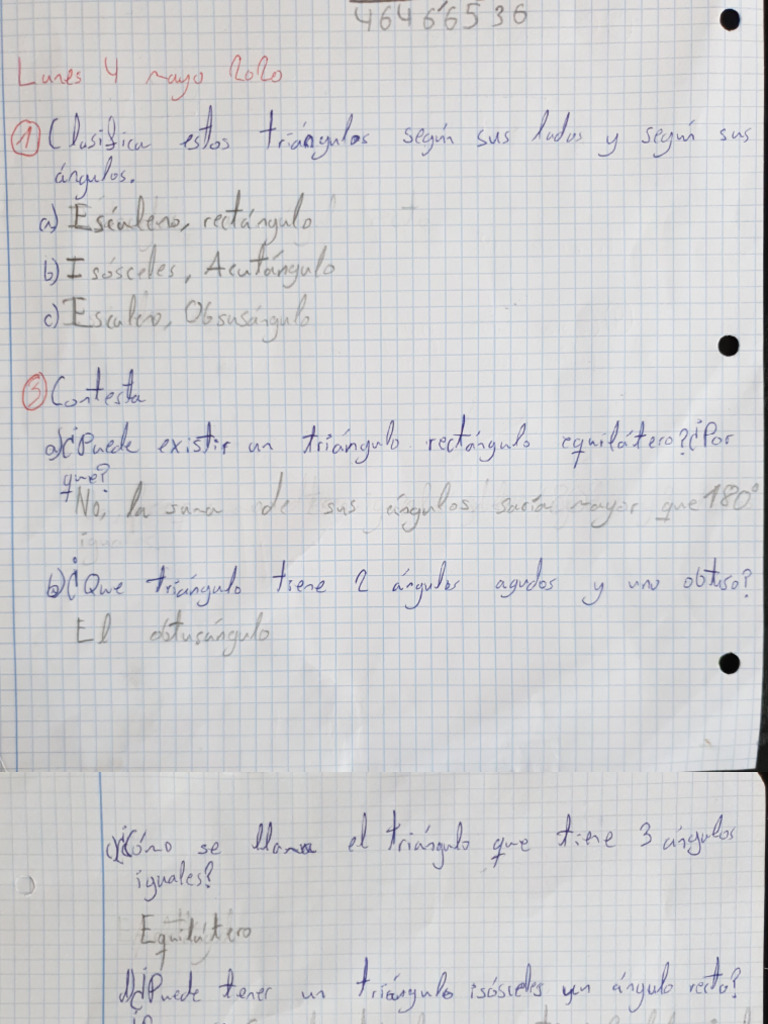 46466536
Lunes 4 mayo 2020
① Clasifica estos triángulos según sus lados y según sus
ángulos.
a) Escaleno, rectángulo
b) Isósceles, Acutángulo
c) Escaleno, Obsusángulo
③ Contesta
a) ¿Puede existir un triángulo rectángulo equilátero? ¿Por
que?
No, la suma de sus ángulos saría mayor que 180°
b) ¿Que triángulo tiene 2 ángulos agudos y uno obtuso?
El obtusángulo
c) ¿Cómo se llama el triángulo que tiene 3 ángulos
iguales?
Equilátero
d) ¿Puede tener un triángulo isósceles un ángulo recto?